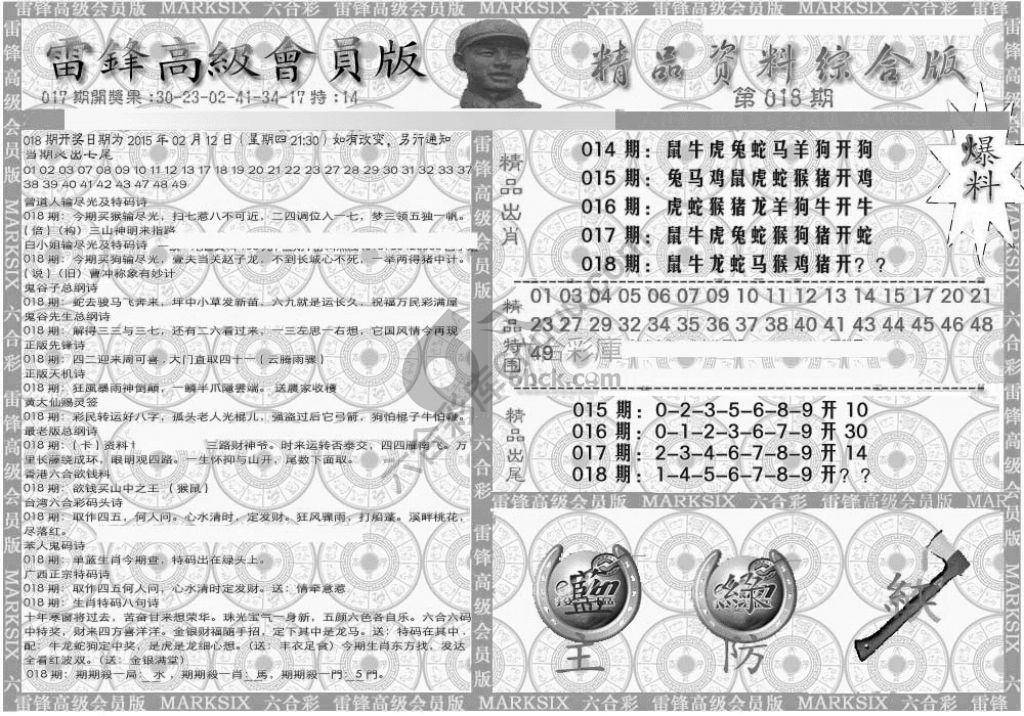 雷锋高级会员版 MARKSIX 六合彩 雷锋高级会员版 MARKSIX 六合彩 雷锋高级会员版 MARKSIX 六合彩
雷鋒高級會員版
精品资料综合版
017期開獎果:30-23-02-41-34-17特:14
第018期
018期开奖日期为2015年02月12日（星期四21:30）如有改变，另行通知
当期入出七尾
01 02 03 07 08 09 10 11 12 13 17 18 19 20 21 22 23 27 28 29 30 31 32 33 37
38 39 40 41 42 43 47 48 49
曾道人输尽光及特码诗
018期：今期买猴输尽光，扫七惹八不可近，二四调位入一七，梦三领五独一帆。
(倍)（构）三山神明来指路
白小姐输尽光及特码诗
018期：今期买狗输尽光，壹夫当关赵子龙，不到长城心不死，一举两得猪中计。
(说)(旧）曹冲称象有妙计
鬼谷子总纲诗
018期：蛇去骏马飞奔来，坪中小草发新苗，六九就是运长久，祝福万民彩满屋
鬼谷先生总纲诗
018期：解得三三与三七，还有二六看过来，一三左思一右想，它国风情今再现
正版先锋诗
018期：四二迎来周可喜，大门直取四十一（云腾雨骤）
正版天机诗
018期：狂風暴雨神倒顛，一鱗半爪隱雲端。送農家收穫
黄大仙赐灵签
018期：彩民转运好八字，孤头老人光棍儿，强盗过后它弓箭，狗怕棍子牛怕鞭。
最老版总纲诗
018期：(卡）资料 三路财神爷。时来运转否泰交，四四雁南飞。万
里长藤绕成环，眼明观四路。一生怀抑与山开，尾数下面取。
香港六合欲钱料
018期：欲钱买山中之王（猴鼠）
台湾六合彩码头诗
018期：取作四五，何人问。心水清时，定发财。狂风骤雨，打船蓬。溪畔桃花，
尽落红。
苯人鬼码诗
018期：单蓝生肖今期查，特码出在绿头上。
广西正宗特码诗
018期：取作四五何人问，心水清时定发财。送：情牵意惹
018期：生肖特码八句诗
十年寒窗将过去，苦奋甘来想荣华。珠光宝气一身新，五颜六色各自乐。六合六码
中特奖，财来四方喜洋洋。金银财福随手招，定下其中是龙马。送：特码在其中，
配：牛龙蛇狗定中奖，是虎是龙细心想。（送：丰衣足食）今期生肖东方找，发达
全看红波双。(送：金银满堂）
018期：期期殺一局：水，期期殺一肖：馬，期期殺一門：5門。
精品出肖
014期：鼠牛虎兔蛇马羊狗开狗
015期：兔马鸡鼠虎蛇猴猪开鸡
016期：虎蛇猴猪龙羊狗牛开牛
017期：鼠虎兔蛇猴狗猪开蛇
018期：鼠牛龙蛇马猴鸡猪开？？
爆料
精品特围
01 03 04 05 06 07 09 10 11 12 13 14 15 17 20 21
23 27 29 32 34 35 36 37 38 40 41 43 44 45 46 48
49
六合彩庫
6hck.com
精品出尾
015期：0-2-3-5-6-8-9开10
016期：0-1-2-3-6-7-9开30
017期：2-3-4-6-7-8-9开14
018期：1-4-5-6-7-8-9开？？
雷锋高级会员版 MARKSIX 六合彩 雷锋高级会员版 MARKSIX
藍
綠
主
防
雷锋高级会员版 MARKSIX 六合彩 雷锋高级会员版 MARKSIX 六合彩 雷锋高级会员版 MARKSIX 六合彩